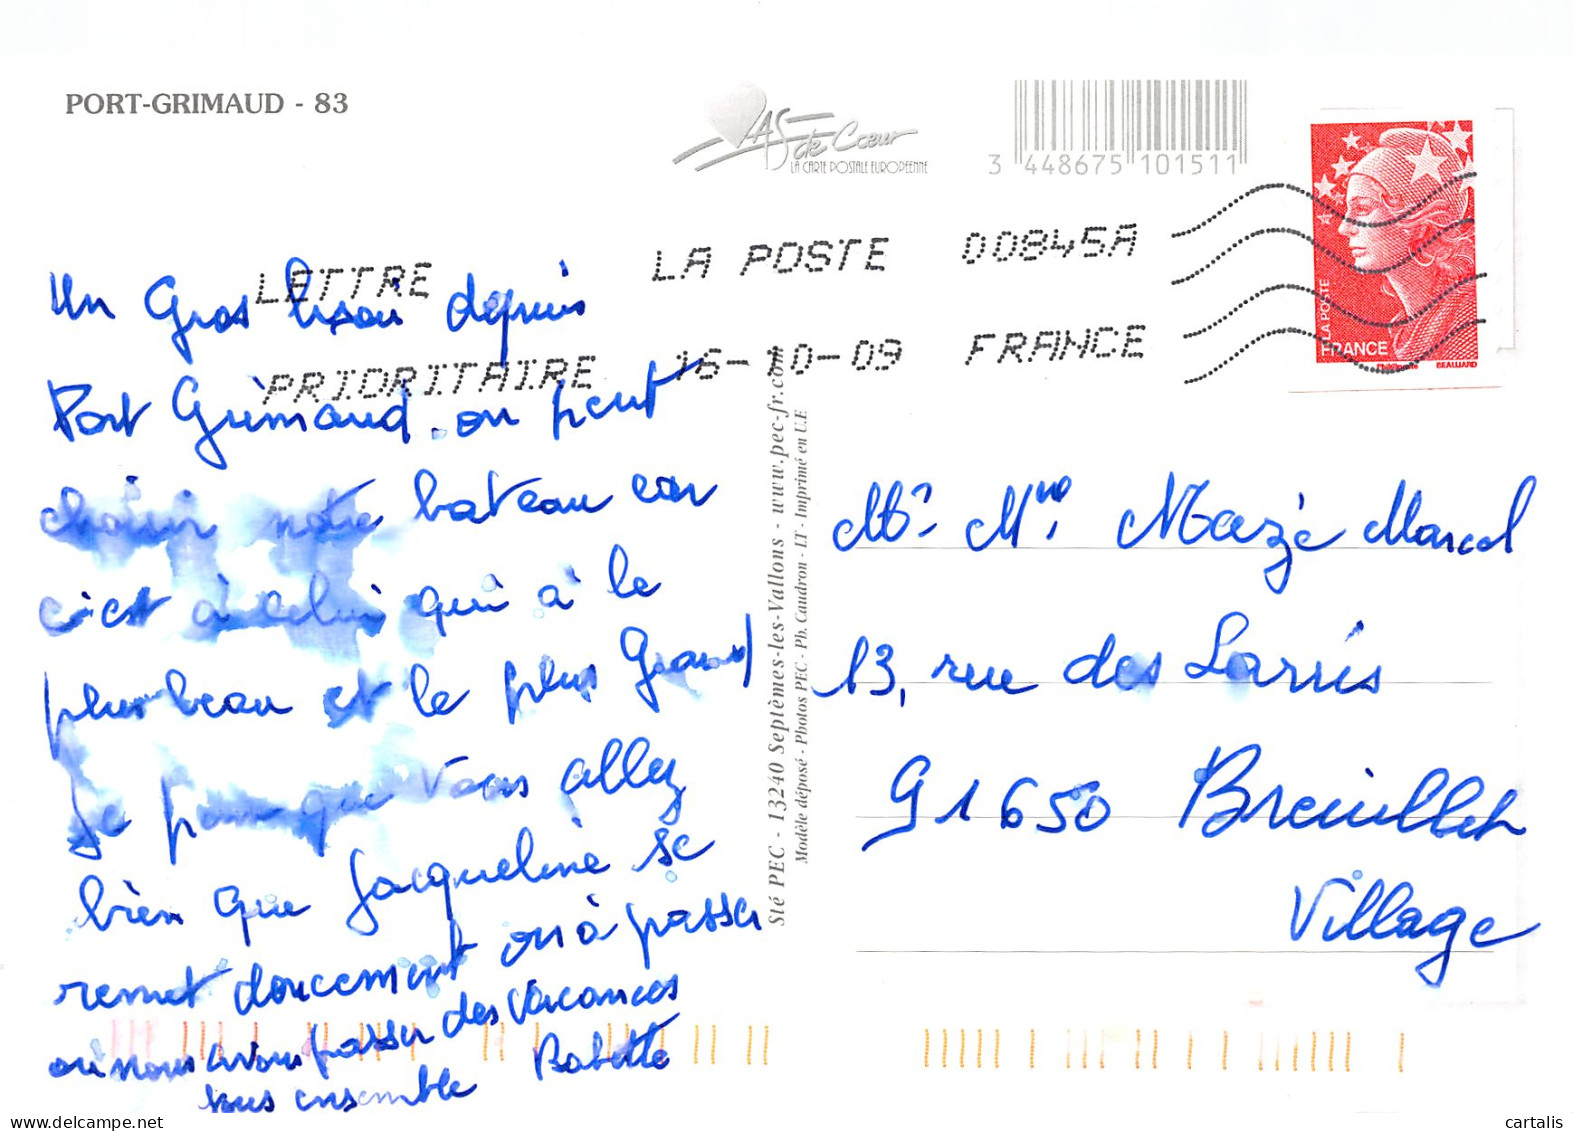 PORT-GRIMAUD - 83
AS de Cœur
LA CARTE POSTALE EUROPÉENNE
3 448675 101511
LETTRE LA POSTE 00845A
PRIORITAIRE 16-10-09 FRANCE
LA POSTE
FRANCE
BEAUJARD
Un Gros bisou depuis
Port Grimaud. on peut
choisir notre bateau car
c'est à celui qui à le
plus beau et le plus Grand
Je pense que vous allez
bien que Jacqueline se
remet doucement on à passer
où nous avons passer des vacances
tous ensemble Babette
Sté PEC - 13240 Septèmes-les-Vallons - www.pec-fr.com
Modèle déposé - Photos PEC - Ph. Caudron - LT - Imprimé en U.E
Mr. Mme Mazé Marcel
13, rue des Larris
91650 Breuillet
Village
www.delcampe.net
cartalis